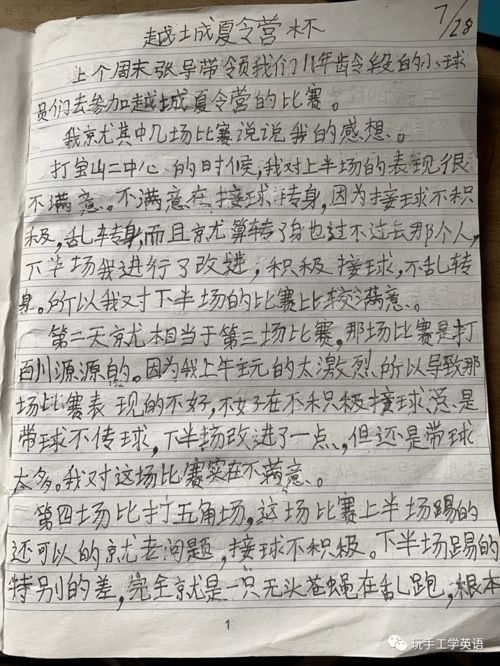 越城夏令营杯
7/28
上个周末张导带领我们11年龄段的小球
员们去参加越城夏令营的比赛。
我就其中几场比赛说说我的感想。
打宝山二中心的时候,我对上半场的表现很
不满意。不满意在接球转身,因为接球不积
极,乱转身,而且就算转了身也过不过去那个人,
下半场我进行了改进,积极接球,不乱转
身。所以我对下半场的比赛比较满意。
第二天就相当于第三场比赛,那场比赛是打
百川源源的。因为我上午玩的太激烈所以导致那
场比赛表现的不好,不好在不积极接球总是
带球不传球,下半场改进了一点,但还是带球
太多。我对这场比赛实在不满意。
第四场比打五角场,这场比赛上半场踢的
还可以的就老问题,接球不积极。下半场踢的
特别的差,完全就是一只无头苍蝇在乱跑,根本
1
玩手工学英语